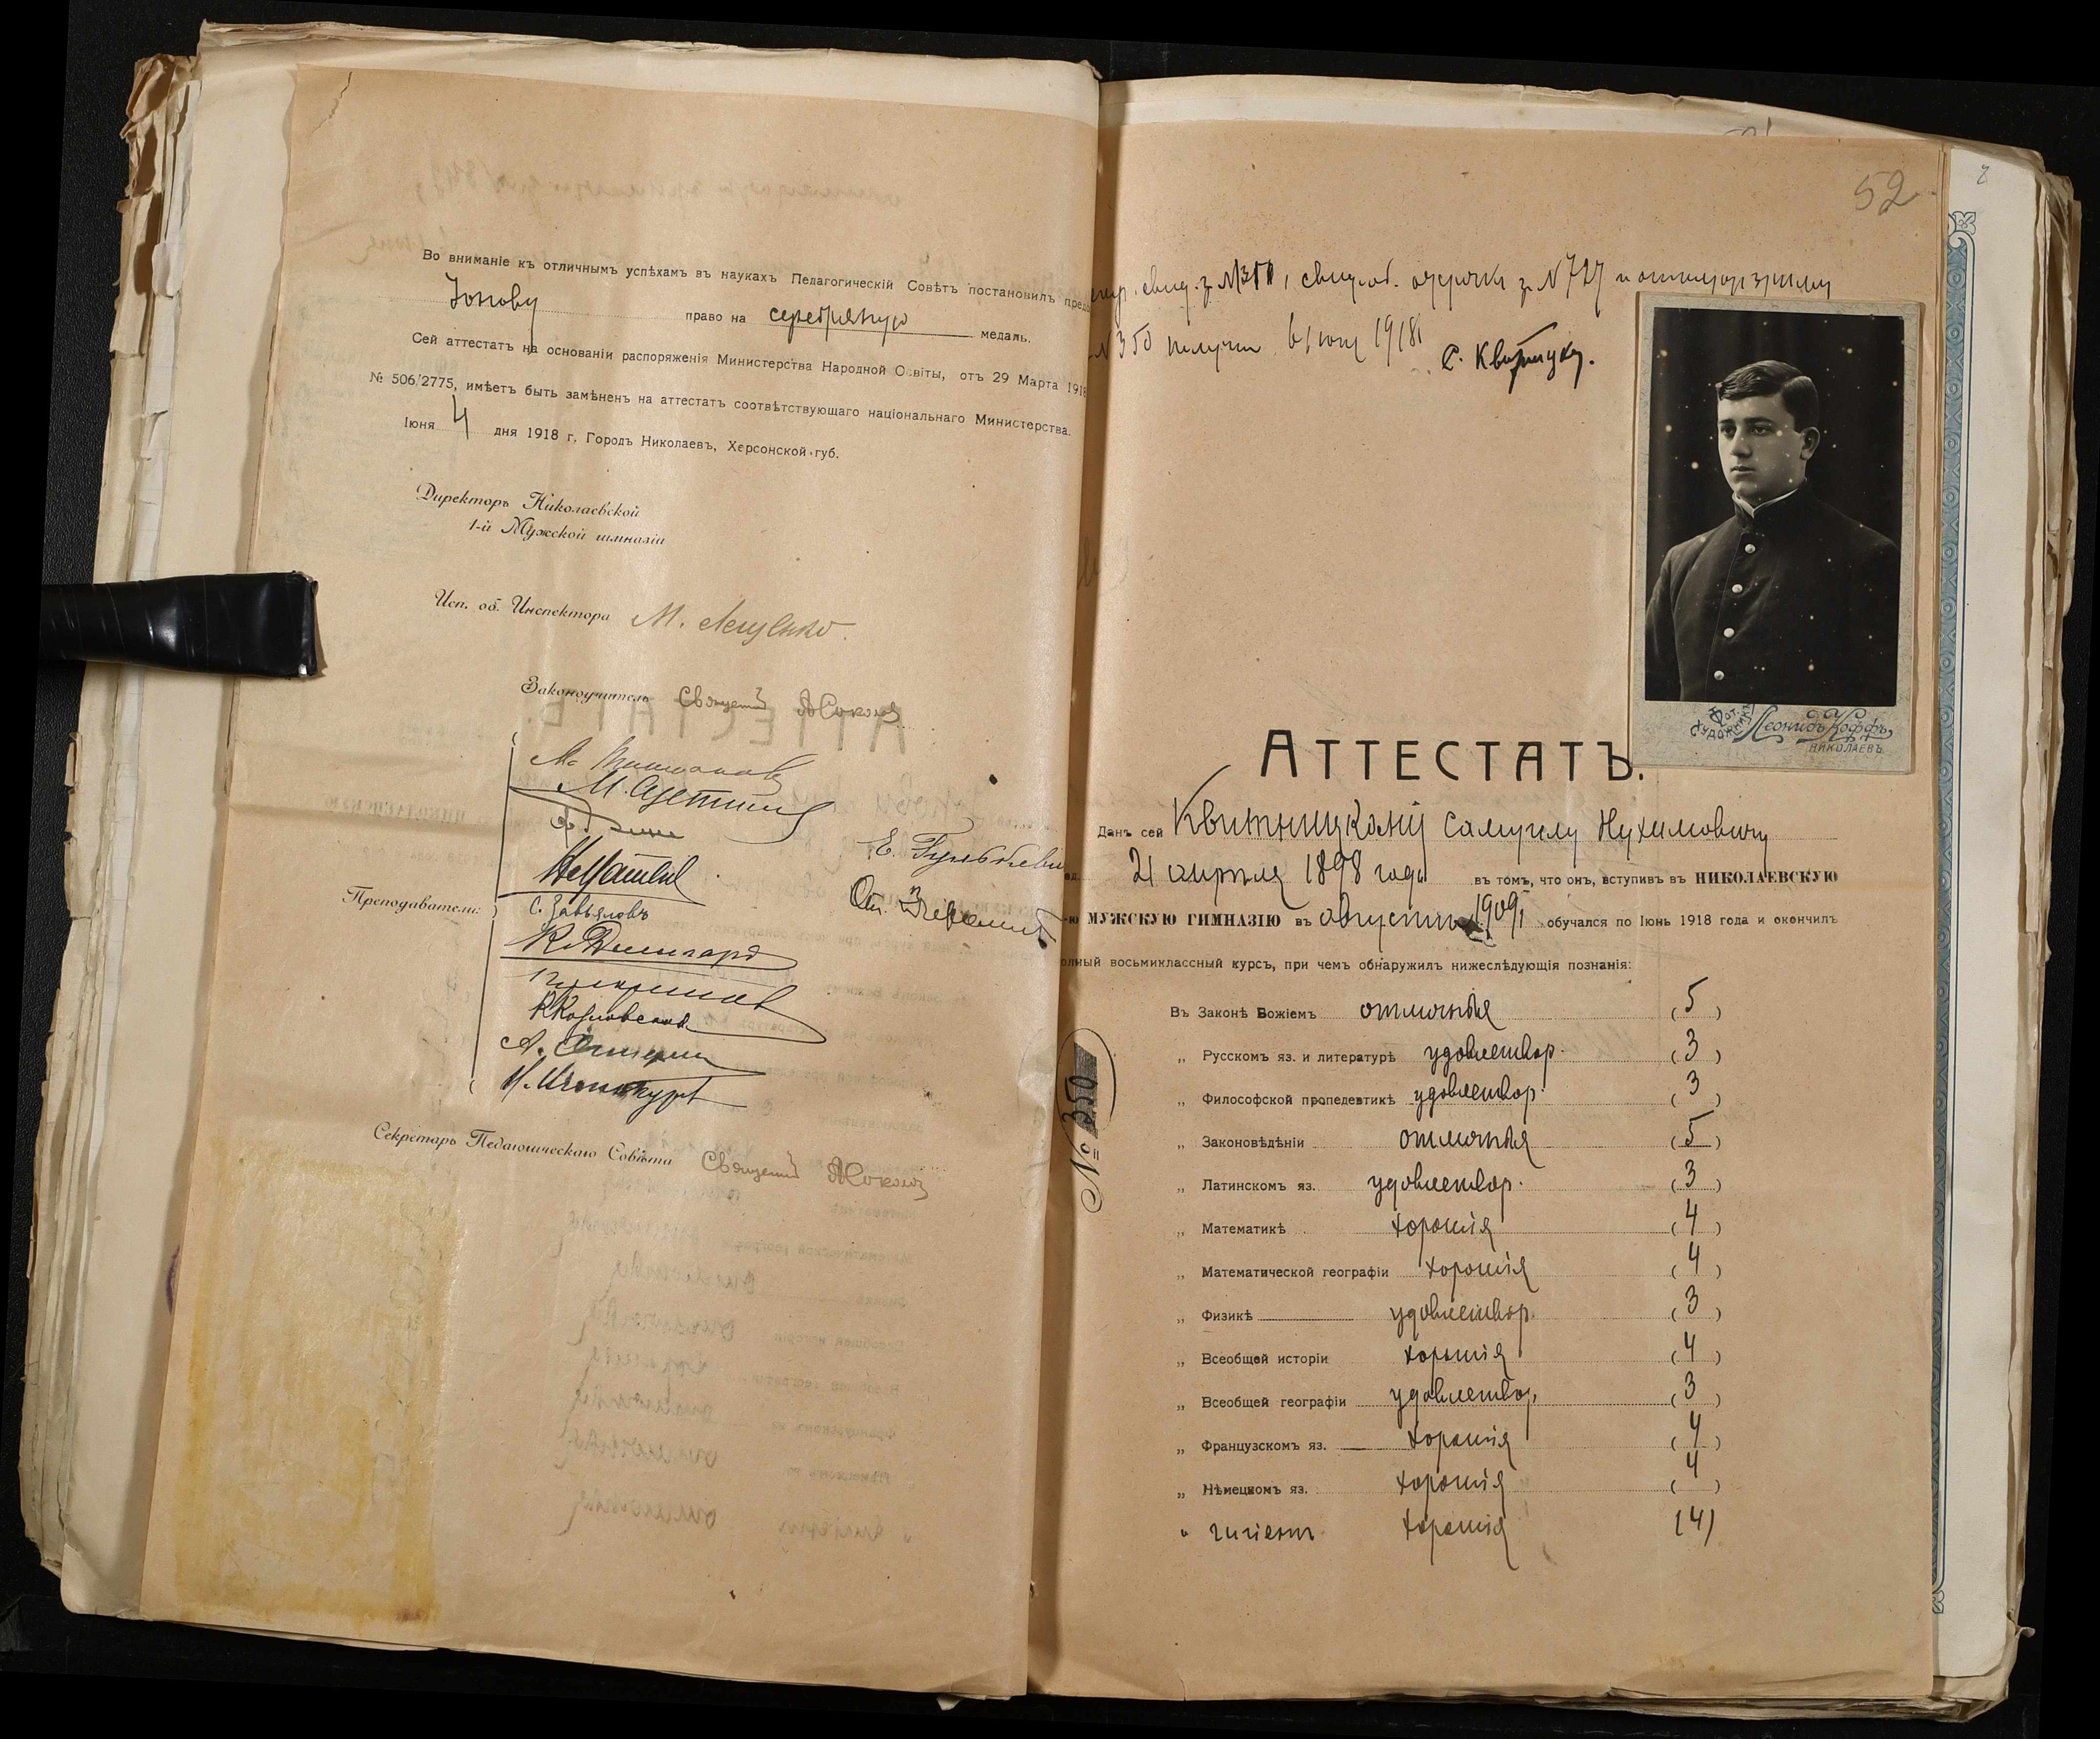 Во вниманіе къ отличнымъ успѣхамъ въ наукахъ Педагогическій Совѣтъ постановилъ
Іонову право на серебряную медаль.
Сей аттестатъ на основаніи распоряженія Министерства Народной Освіты, отъ 29 Марта 1918
№ 506/2775, имѣетъ быть замѣненъ на аттестатъ соотвѣтствующаго національнаго Министерства.
Іюня 4 дня 1918 г. Городъ Николаевъ, Херсонской губ.
Директоръ Николаевской
1-й Мужской гимназіи
Исп. об. Инспектора М. Лещенко.
Законоучитель Священникъ А Соколов
Преподаватели:
С. Завьяловъ
Секретарь Педагогическаго Совѣта Священникъ А Соколов
52
свид. з. № 350, свид. об. отсрочкѣ з. № 727 и аттестат зрѣлости
№ 350 получил 6 іюня 1918
С. Квитницкій.
Фот. Художникъ
Леонидъ Коффъ,
НИКОЛАЕВЪ
АТТЕСТАТЪ.
Данъ сей Квитницкому Самуилу Нухимовичу
21 апрѣля 1898 года въ томъ, что онъ, вступивъ въ НИКОЛАЕВСКУЮ
-ю МУЖСКУЮ ГИМНАЗІЮ въ августѣ 1909, обучался по Іюнь 1918 года и окончилъ
полный восьмиклассный курсъ, при чемъ обнаружилъ нижеслѣдующія познанія:
№ 350
Въ Законѣ Божіемъ отличныя (5)
„ Русскомъ яз. и литературѣ удовлетвор. (3)
„ Философской пропедевтикѣ удовлетвор. (3)
„ Законовѣдѣніи отличныя (5)
„ Латинскомъ яз. удовлетвор. (3)
„ Математикѣ хорошія (4)
„ Математической географіи хорошія (4)
„ Физикѣ удовлетвор. (3)
„ Всеобщей исторіи хорошія (4)
„ Всеобщей географіи удовлетвор. (3)
„ Французскомъ яз. хорошія (4)
„ Нѣмецкомъ яз. хорошія (4)
„ гигіенѣ хорошія (4)